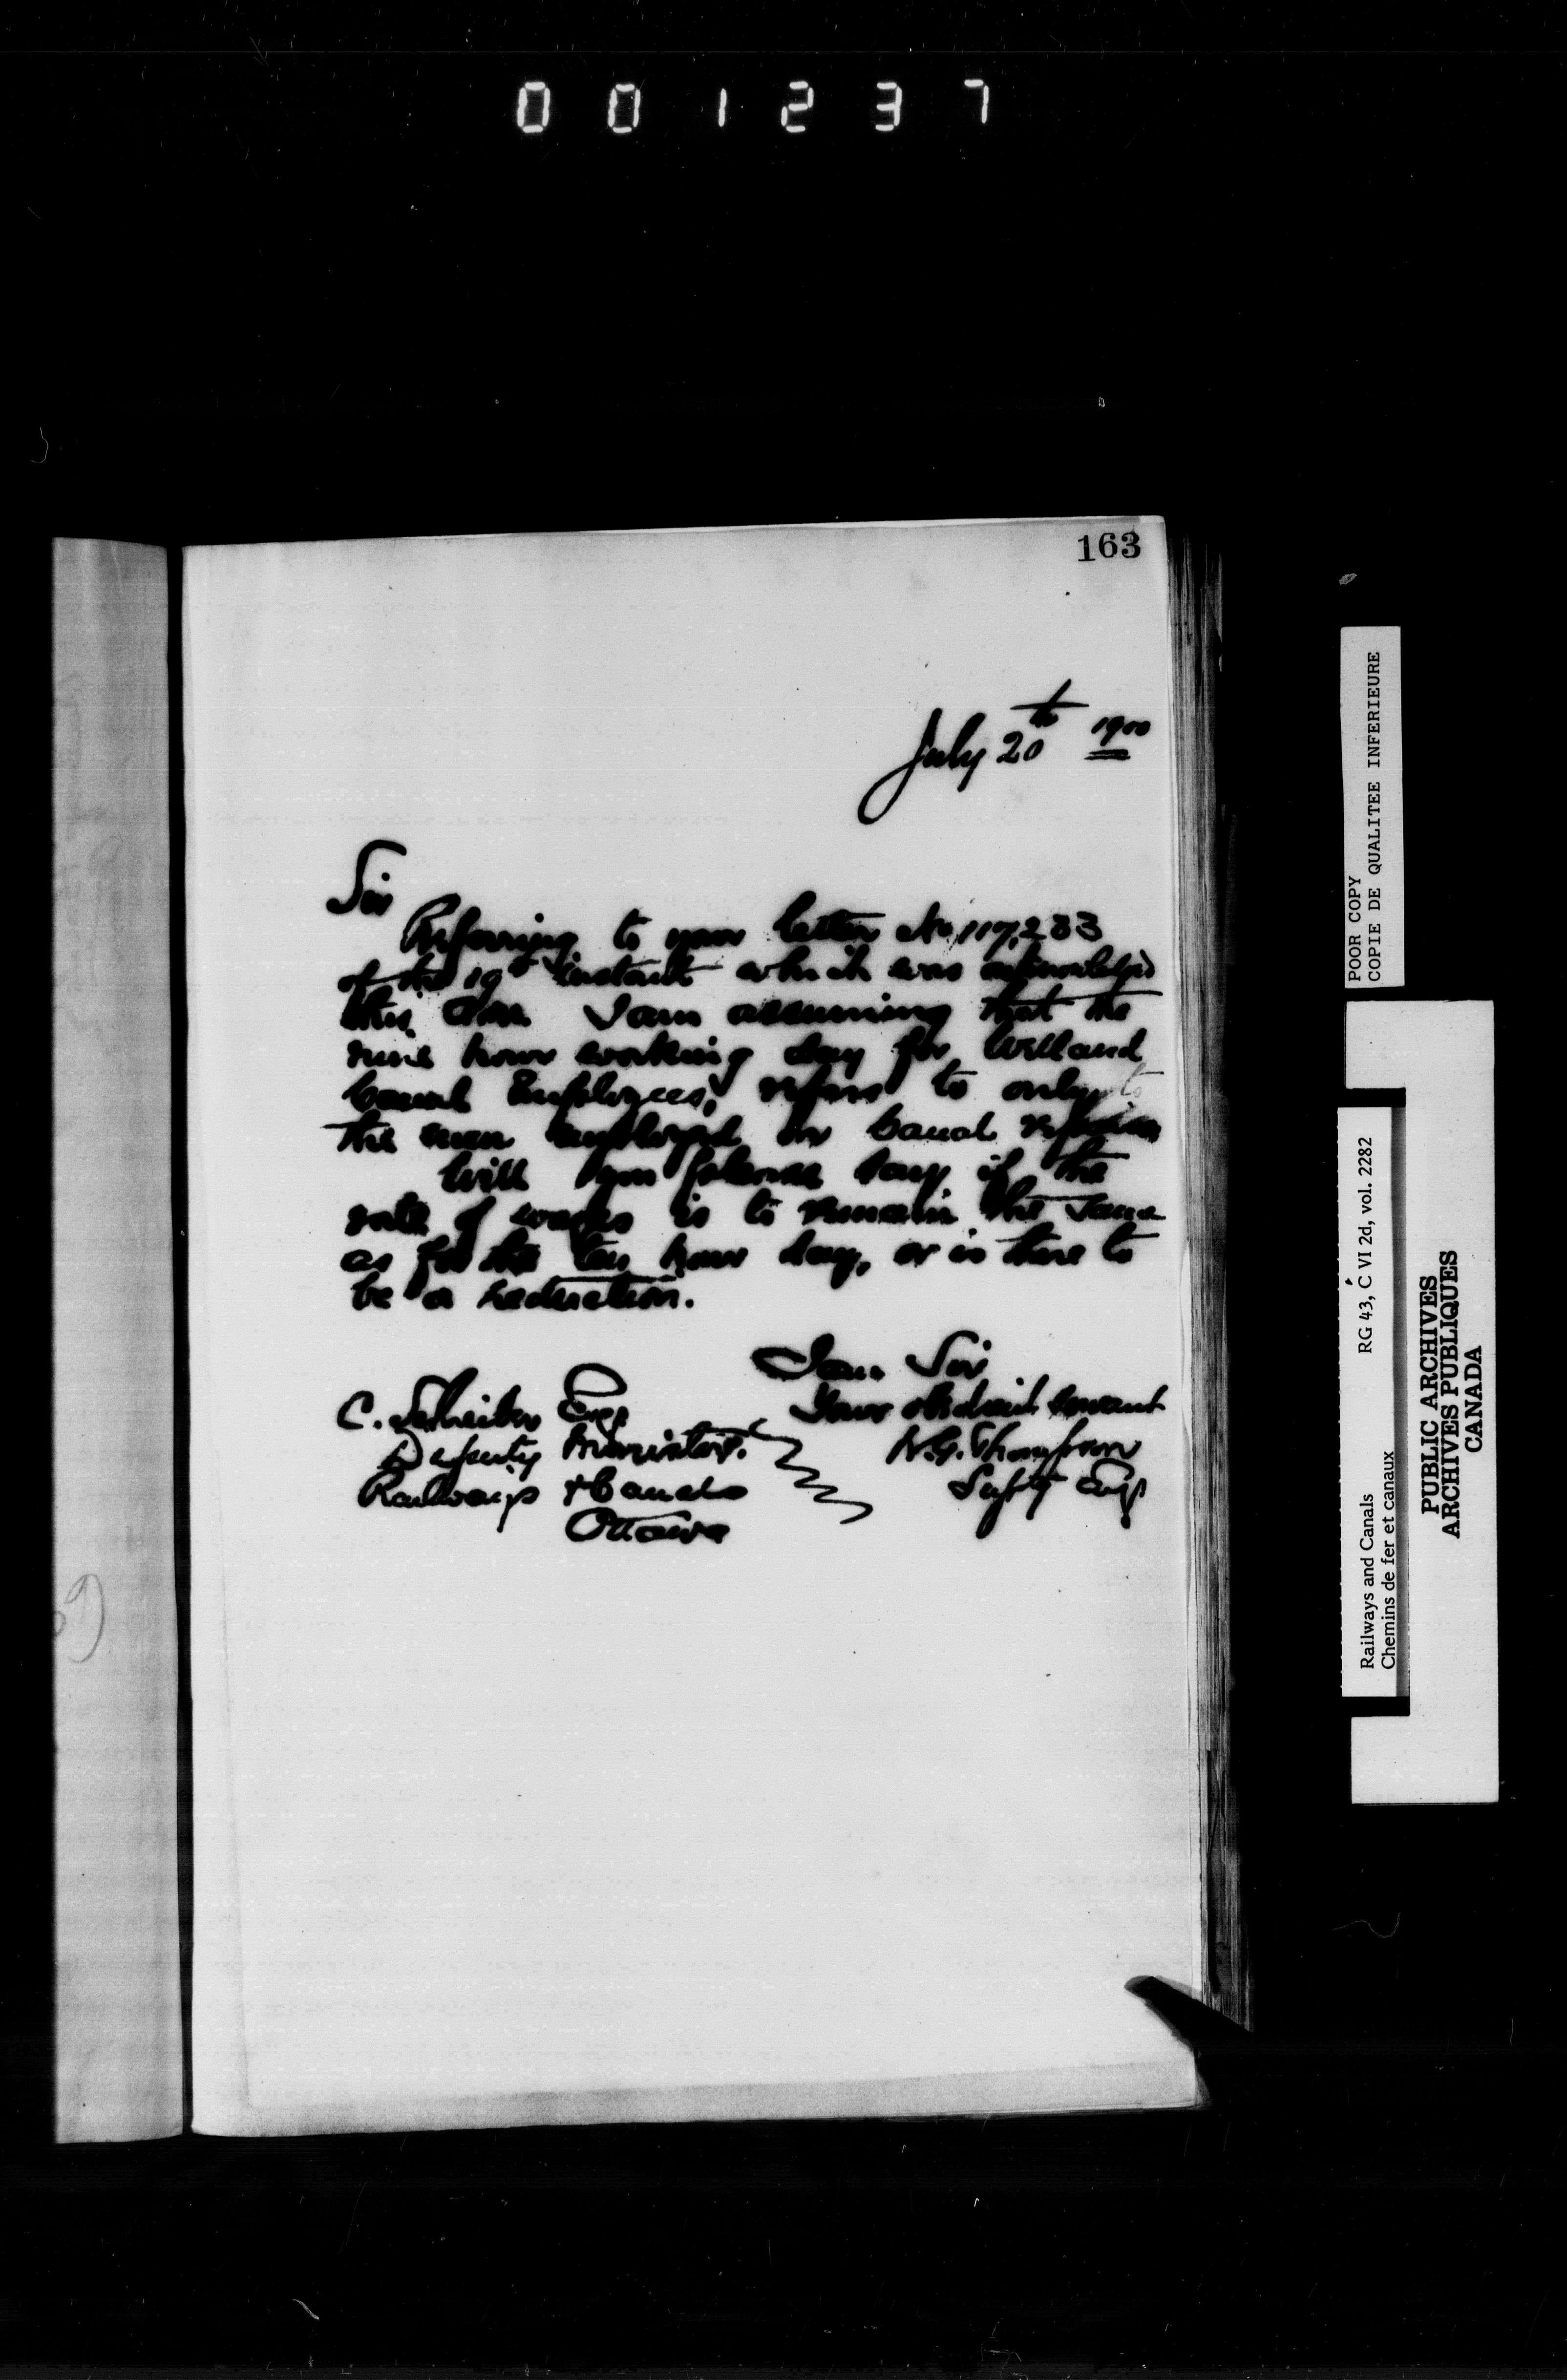 001237
163
July 20th 1900
Sir
Referring to your letter No 117,283
of the 19th instant which was acknowledged
this I am assuming that the
nine hour working day for Welland
Canal Employees, refers to only to
the men employed on Canal repairs
Will you please say if the
rate of wages is to remain the same
as for the ten hour day, or is there to
be a reduction.
I am Sir
Your obedient servant
W.G. Thompson
Supt'g Eng.
C. Schreiber Esq
Deputy Minister.
Railways & Canals
Ottawa
POOR COPY
COPIE DE QUALITEE INFERIEURE
Railways and Canals RG 43, C VI 2d, vol. 2282
Chemins de fer et canaux
PUBLIC ARCHIVES
ARCHIVES PUBLIQUES
CANADA